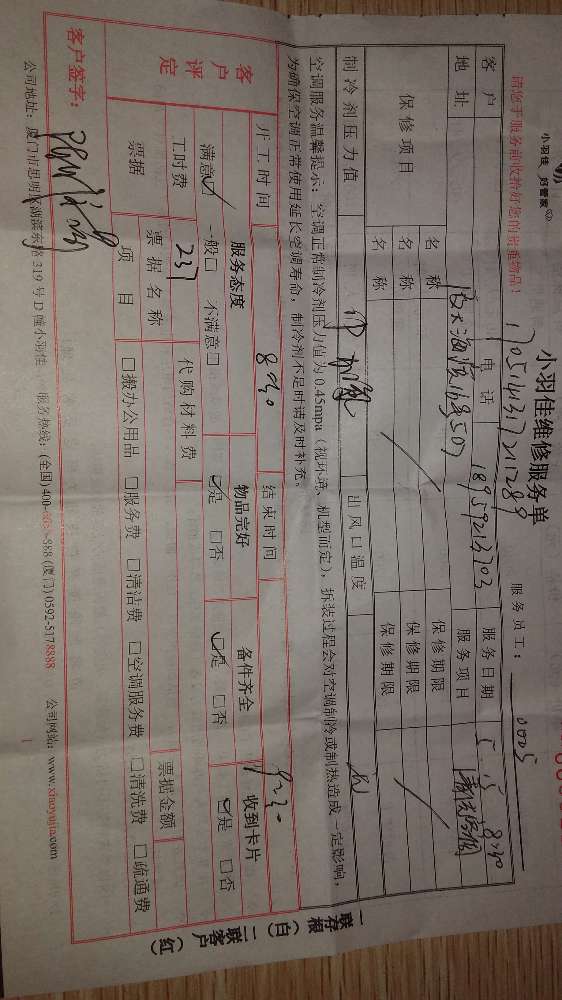 小羽佳 好管家
小羽佳维修服务单
请您于服务前收拾好您的贵重物品！
服务员工： 0005
客户 电话 18959213703 服务日期 5.15 8:40
地址 服务项目
保修项目 名称 保修期限
名称 保修期限
名称 保修期限
制冷剂压力值 出风口温度
空调服务温馨提示：空调正常制冷剂压力值为0.45mpa（视环境、机型而定），拆装过程会对空调制冷或制热造成一定影响，
为确保空调正常使用延长空调寿命，制冷剂不足时请及时补充。
开工时间 8:40 结束时间 9:30
客户评定 服务态度 物品完好 备件齐全 收到卡片
满意☑ 一般□ 不满意□ ☑是 □否 ☑是 □否 ☑是 □否
工时费 237 代购材料费
票据 票据名称 票据金额
项目 □搬办公用品 □服务费 □清洁费 □空调服务费 □清洗费 □疏通费
客户签字：
公司地址：厦门市思明区湖滨东路319号D幢小羽佳 服务热线：(全国)400- -888 (厦门)0592-5178888 公司网站：www.xiaoyujia.com
一联存根（白） 二联客户（红）